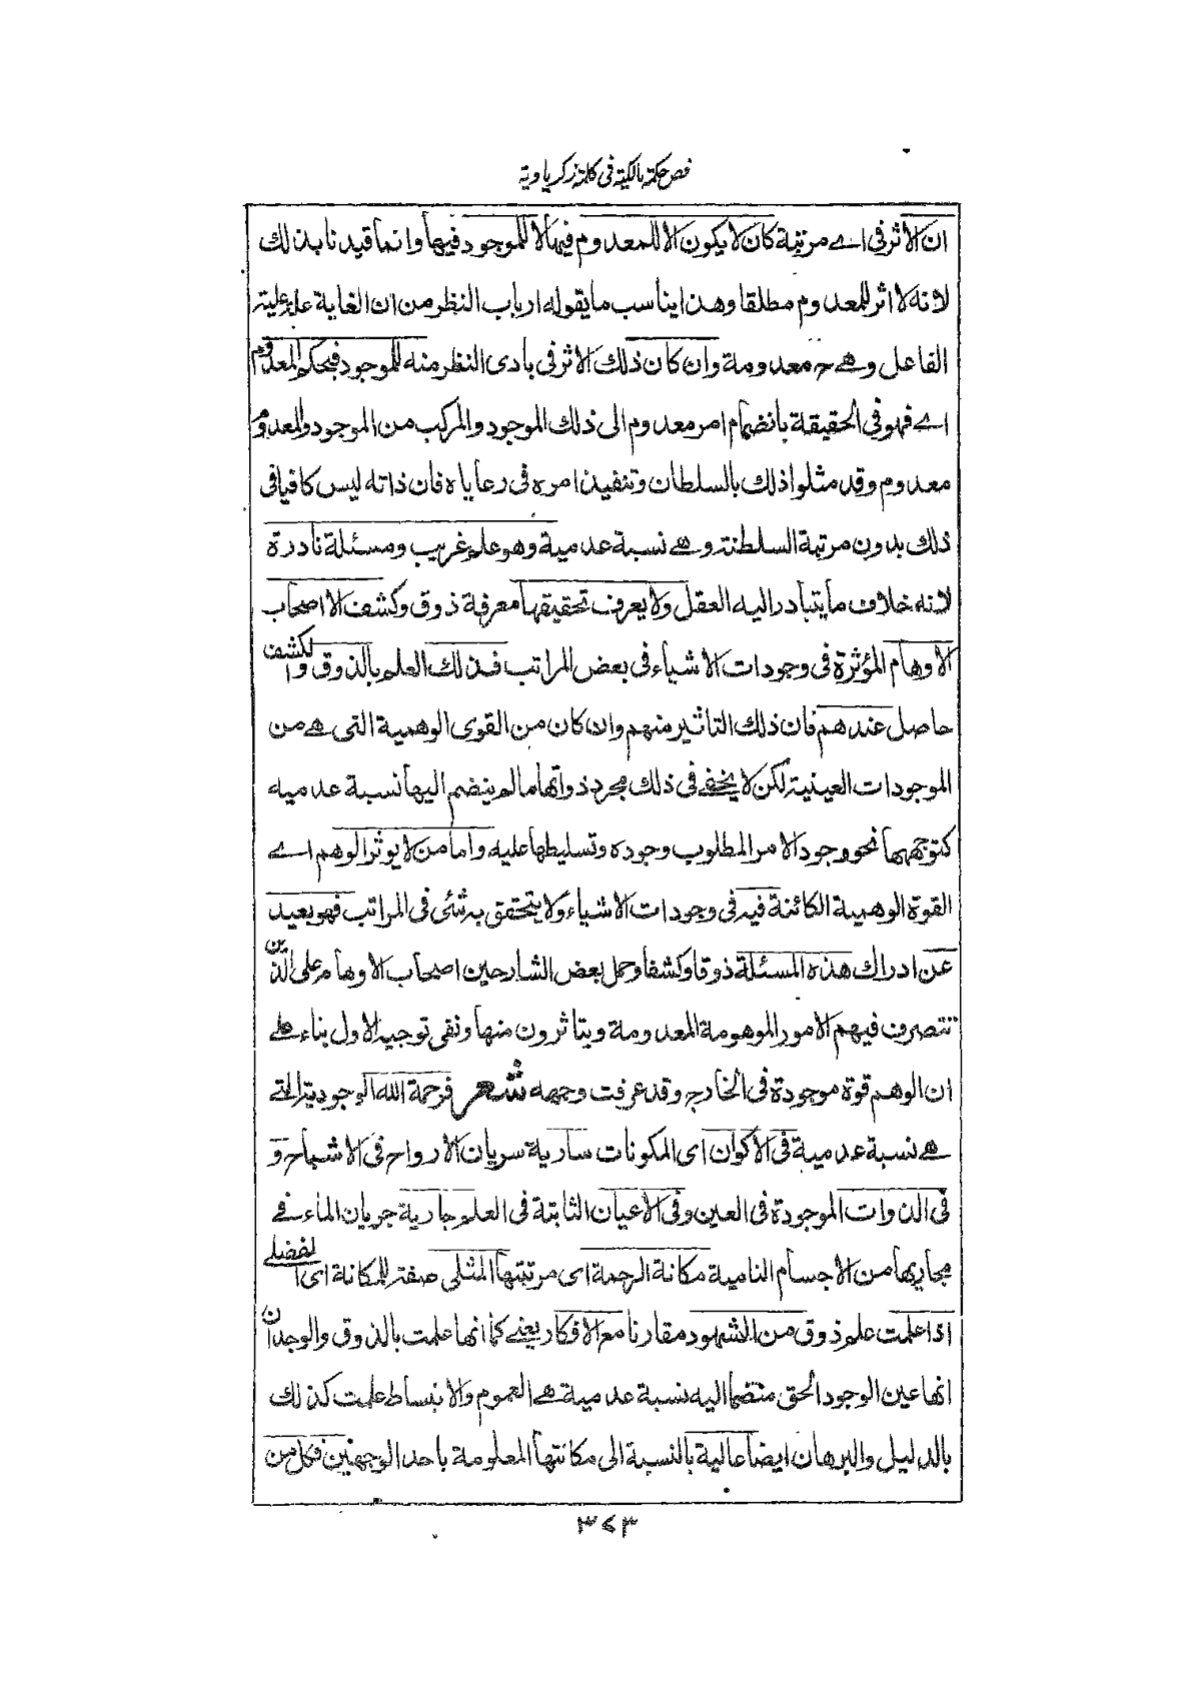 فص حكمة مالكية فى كلمة زكرياوية
ان الاثر فى اے مرتبة كان لا يكون الا للمعدوم فيها لا للموجود فيها وانما قيدنا بذلك
لانه لا اثر للمعدوم مطلقا وهذا يناسب ما يقوله ارباب النظر من ان الغاية علة علية
الفاعل وهے ح معدومة وان كان ذلك الاثر فى بادى النظر منه للموجود فبحكم المعدوم
اے فهو فى الحقيقة بانضمام امر معدوم الى ذلك الموجود والمركب من الموجود والمعدوم
معدوم وقد مثلوا ذلك بالسلطان وتنفيذ امره فى رعاياه فان ذاته ليس كافيا فى
ذلك بدون مرتبة السلطنة وهے نسبة عدمية وهو علم غريب ومسئلة نادرة
لانه خلاف ما يتبادر اليه العقل ولا يعرف تحقيقها معرفة ذوق وكشف الا اصحاب
الاوهام المؤثرة فى وجودات الاشياء فى بعض المراتب فذلك العلم بالذوق والكشف
حاصل عندهم فان ذلك التاثير منهم وان كان من القوى الوهمية التى هے من
الموجودات العينية لكن لا يخفے فى ذلك مجرد ذواتها مالم ينضم اليها نسبة عدميه
كتوجهها نحو وجود الامر المطلوب وجوده وتسليطها عليه واما من لا يوثر الوهم اے
القوة الوهمية الكائنة فيه فى وجودات الاشياء ولا يتحقق به شئى فى المراتب فهو بعيد
عن ادراك هذه المسئلة ذوقا وكشفا وحمل بعض الشارحين اصحاب الاوهام على الذين
تتصرف فيهم الامور الموهومة المعدومة ويتاثرون منها ونفى توجيه الاول بناء علے
ان الوهم قوة موجودة فى الخارج وقد عرفت وجهه شعر فرحمة الله الوجودية التے
هے نسبة عدمية فى الاكوان اى المكونات سارية سريان الارواح فى الاشباح و
فى الذوات الموجودة فى العين وفى الاعيان الثابتة فى العلم جارية جريان الماء فے
مجاريها من الاجسام النامية مكانة الرحمة اى مرتبتها المثلى صفة للمكانة اى الفضلے
اذا علمت علم ذوق من الشهود مقارنا مع الافكار يعنے كما انها علمت بالذوق والوجدان
انها عين الوجود الحق منضما اليه نسبة عدمية هے العموم والانبساط علمت كذلك
بالدليل والبرهان ايضا عالية بالنسبة الى مكانتها المعلومة باحد الوجهين فكل من
٣٧٣